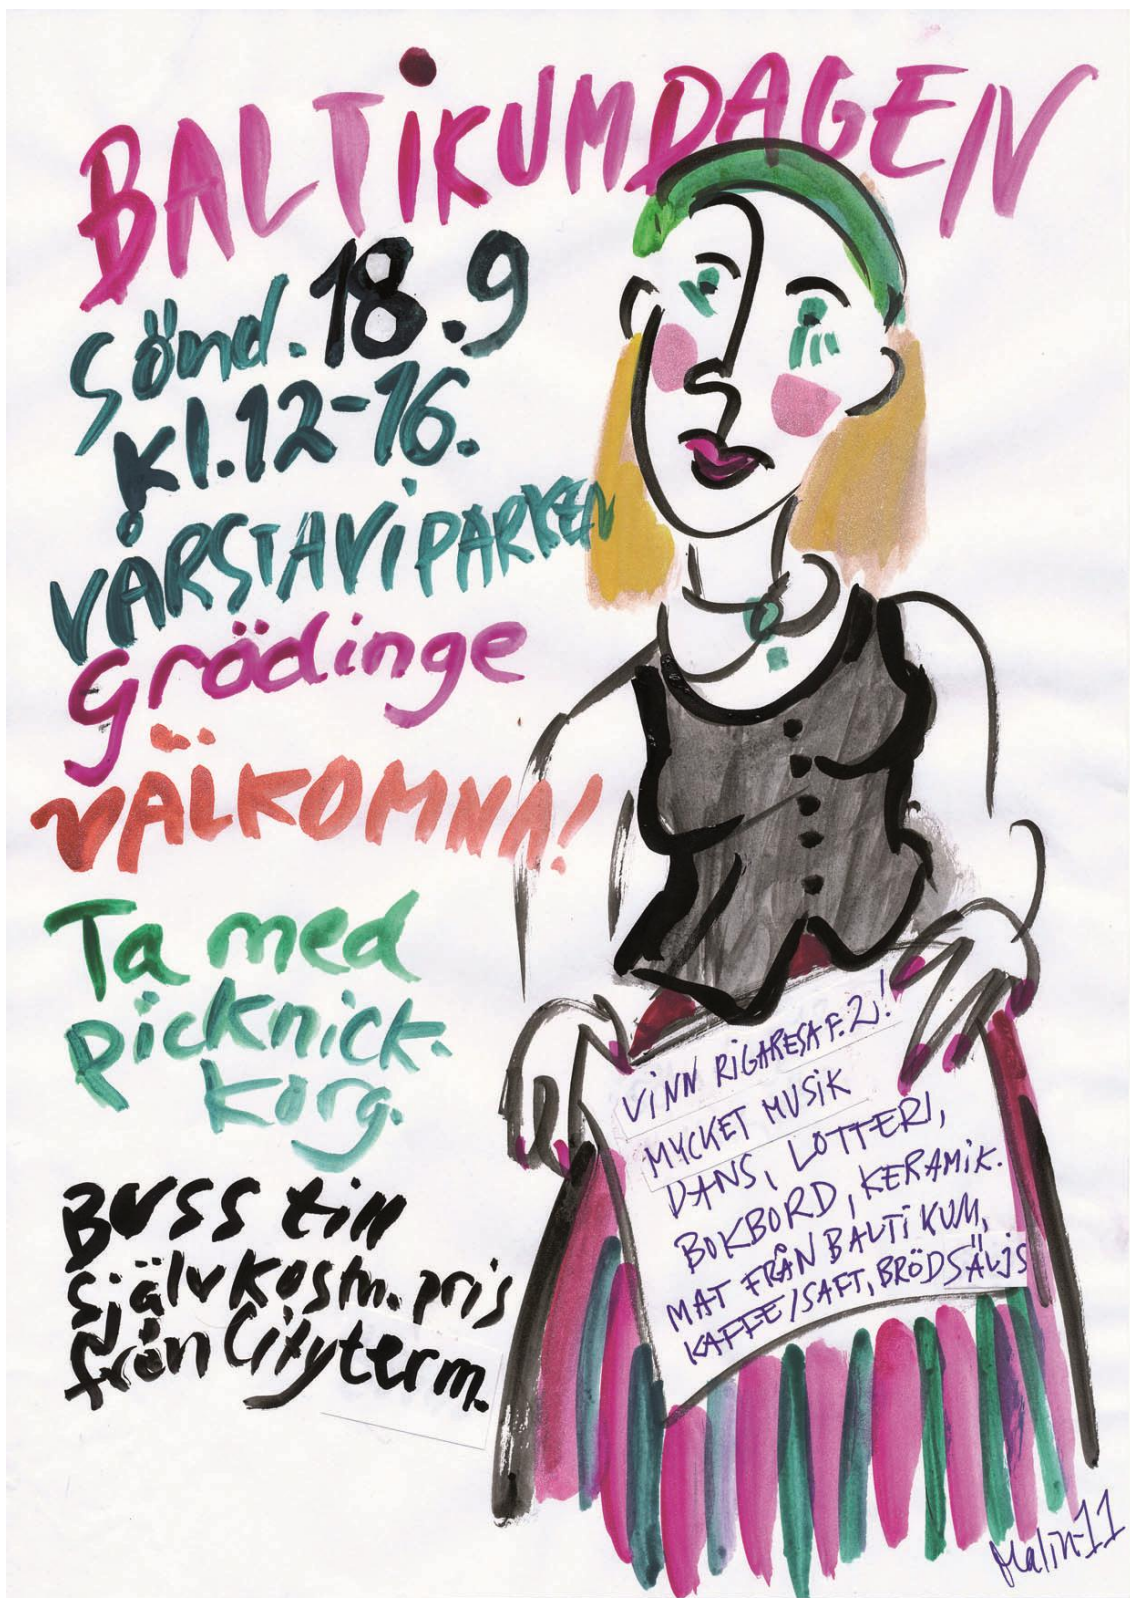 BALTiKUMDAGEN
Sönd. 18.9
Kl. 12-16.
VÅRSTAViPARKEN
Grödinge
VÄLKOMNA!
Ta med
picknick-
korg.
BUSS till
självkostn. pris
från Cityterm.
ViNN RiGARESA F. 2!
MYCKET MUSiK
DANS, LOTTERI,
BOKBORD, KERAMiK.
MAT FRÅN BALTiKUM,
KAFFE/SAFT, BRÖDSÄLJS
Malin-11